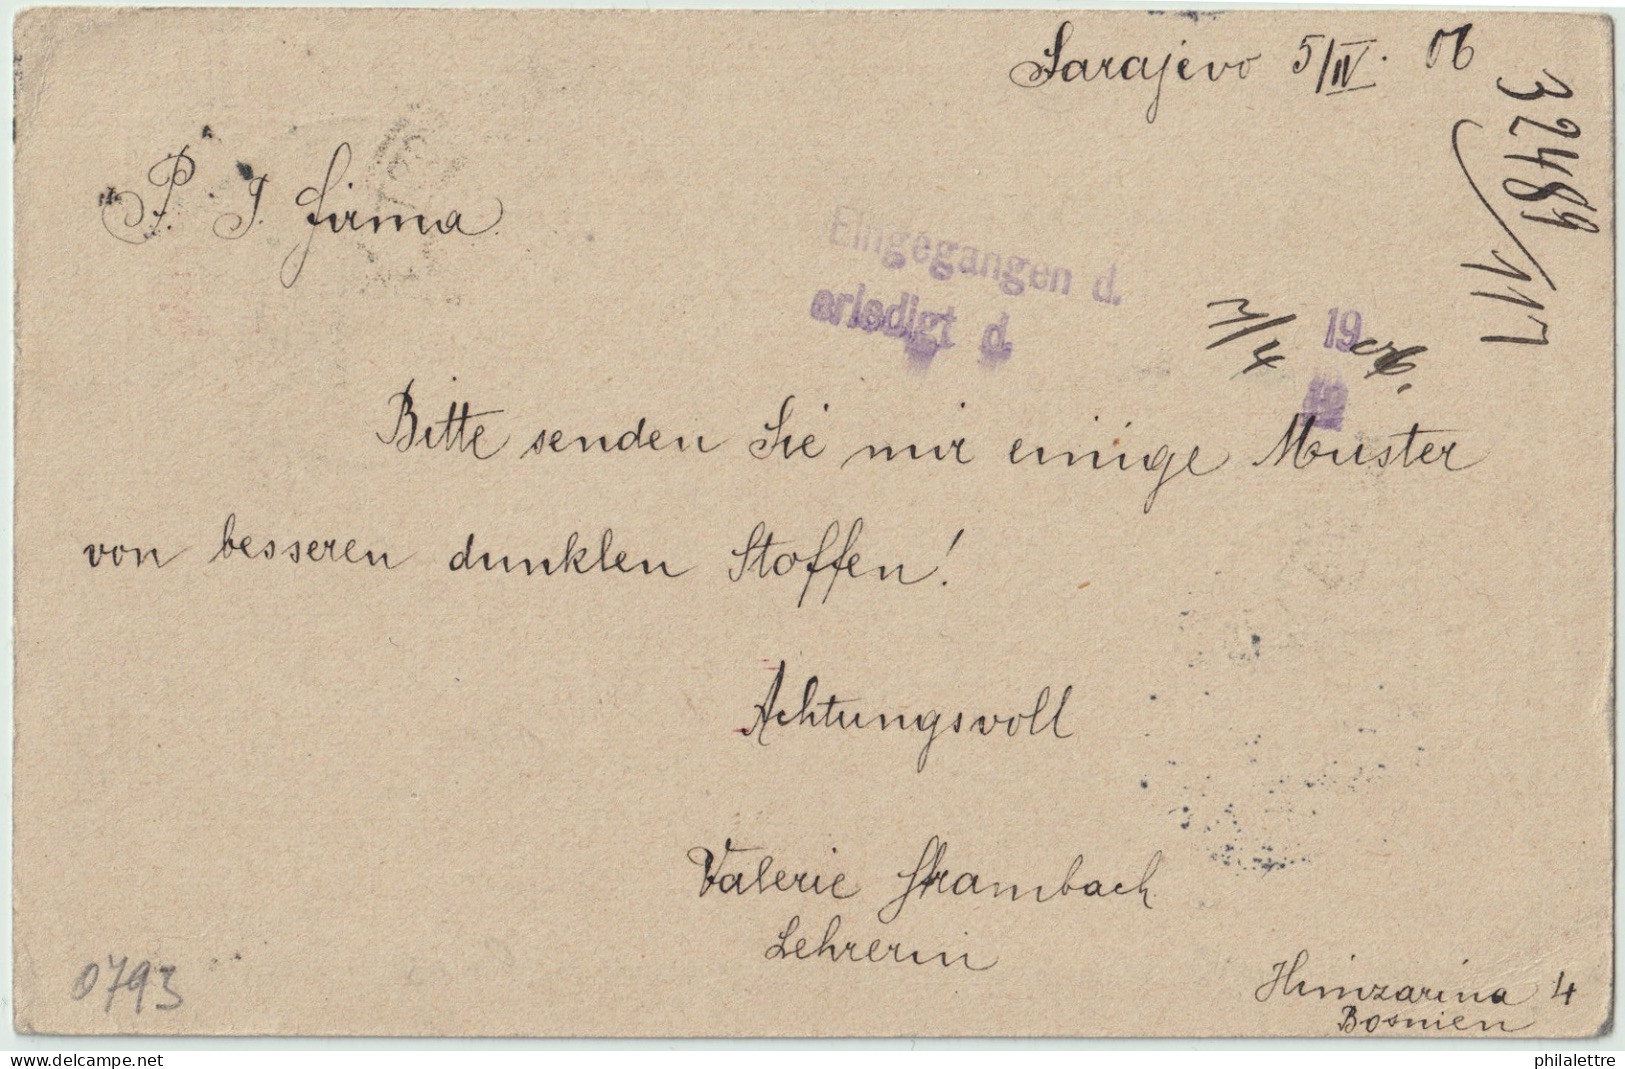 Sarajevo 5/IV. 06
32489/117
P. T. Firma
Eingegangen d.
erledigt d.
7/4 1906.
Bitte senden Sie mir einige Muster
von besseren dunklen Stoffen!
Achtungsvoll
Valerie Skrambach
Lehrerin
Himzarina 4
Bosnien
0793
© DELCAMPE.net
philalettre